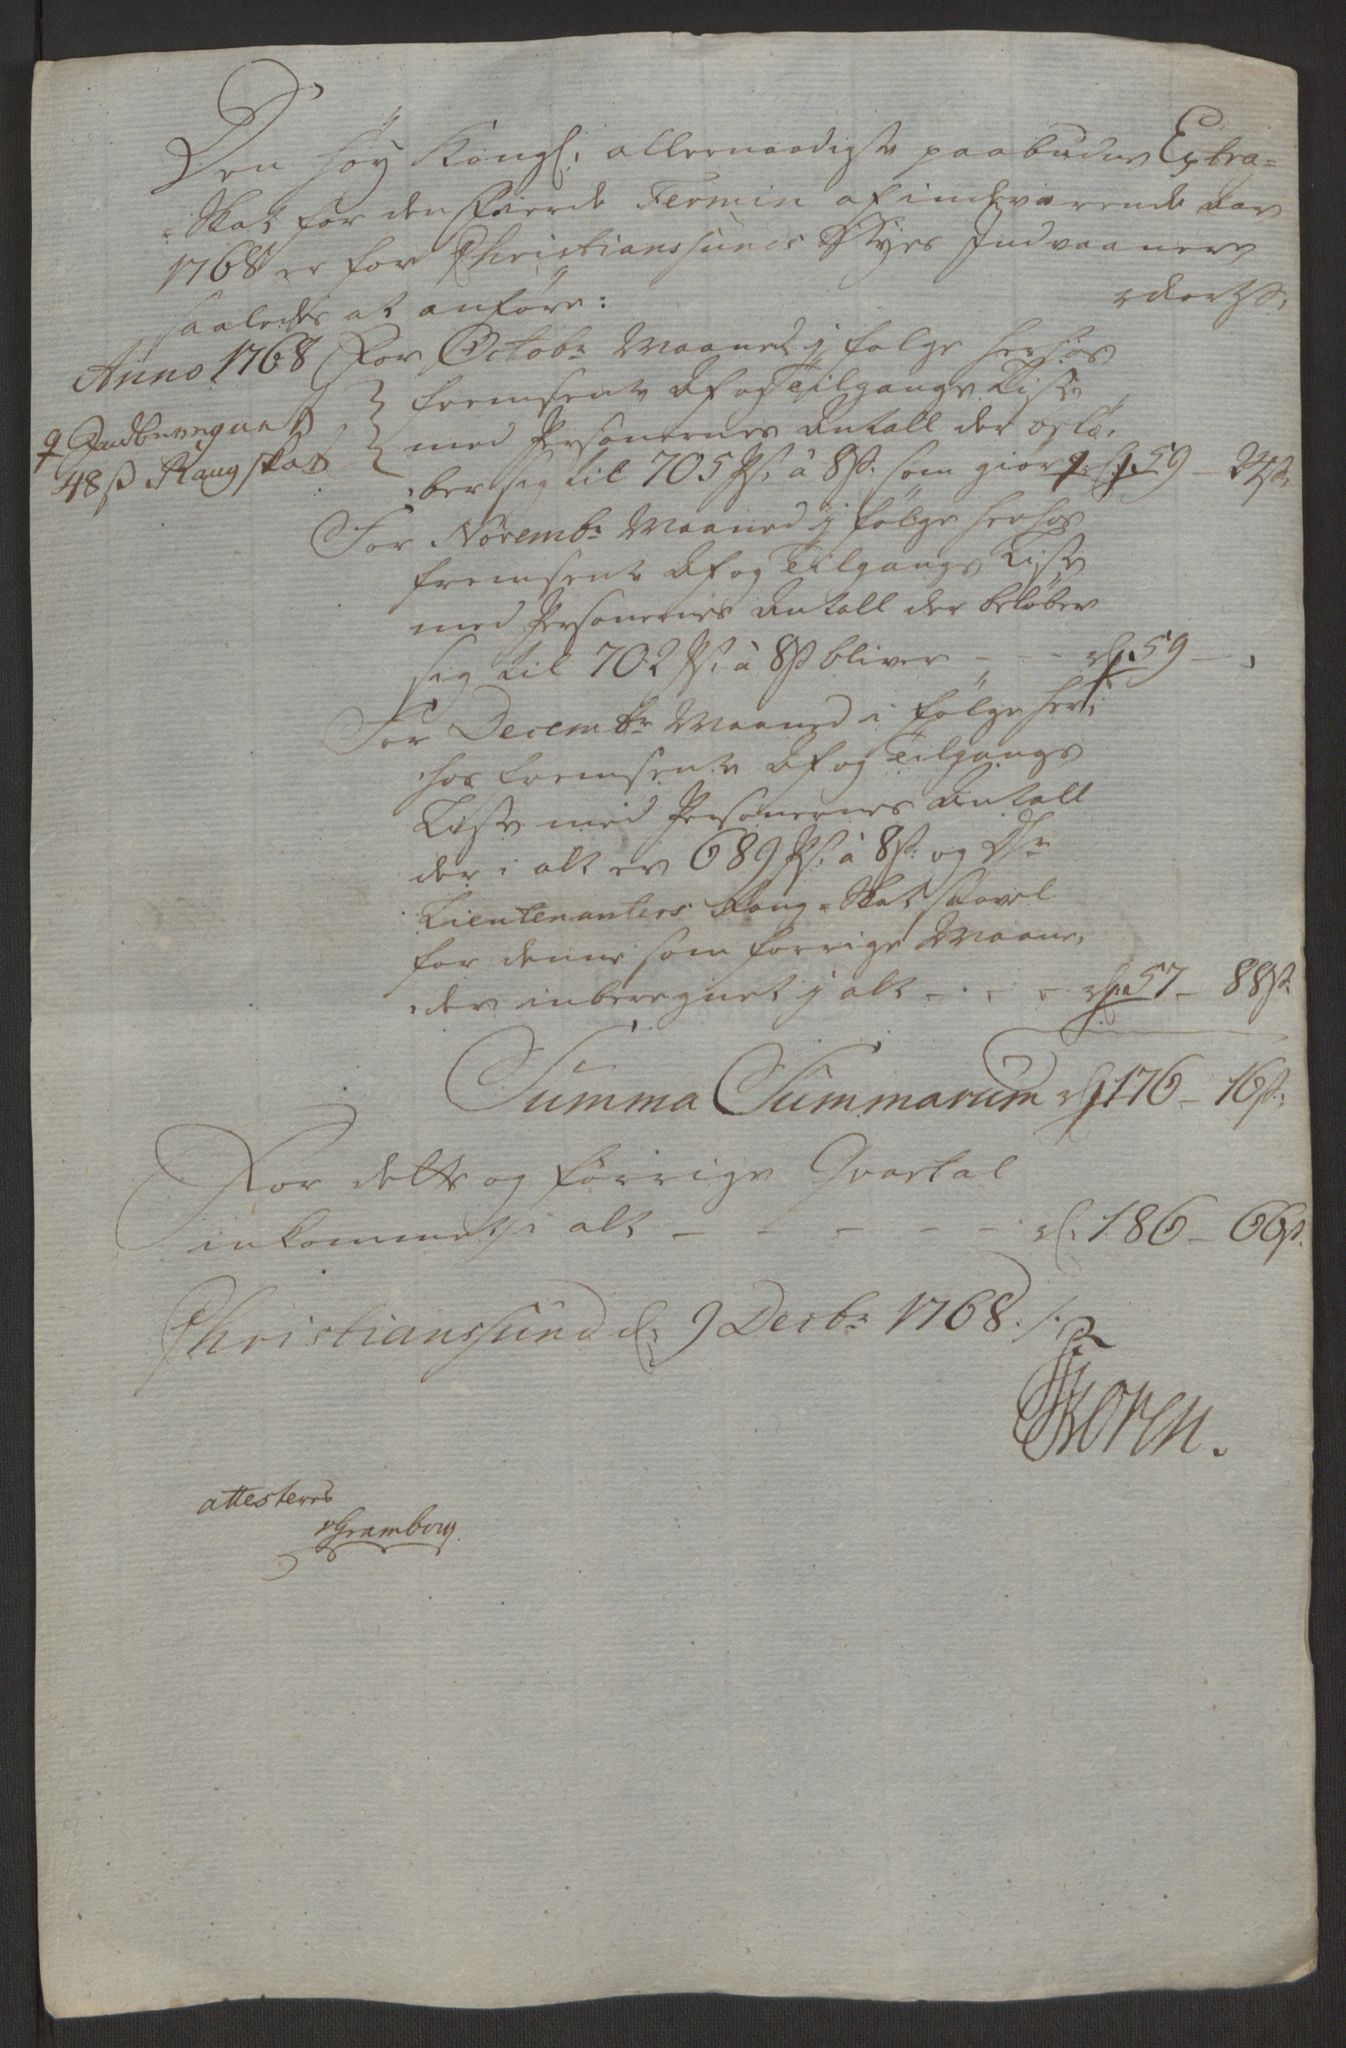 Den Høy Kongl. allernaadigste paabudne Extra-
Skat for den Fierde Termin af indeværende Aar
1768 er for Christianssunds Byes Indvaanere
saaledes at anføre:
Anno 1768 For Octobr Maaned j følge herhos
fremsente Af og Tilgangs Liste
Indberegnet
med Personernes Antall der belø-
48 ß Rang skat
ber sig til 705 Ps. à 8 ß. som giør rd. 59 -
For Novembr Maaned j følge herhos
fremsente Af og Tilgangs Liste
med Personernes Antall der beløber
sig til 702 Ps. à 8 ß bliver - - - rd. 59 -
For Decembr Maaned i følge her-
hos fremsente Af og Tilgangs
Liste med Personernes Antall
der i alt er 689 Ps. à 8 ß. og Hr
Lieutenanters Rang-Skat saavel
for denne som forrige Maane-
der inberegnet j alt - - - rd. 57 - 88 ß.
Summa Summarum rd. 176 - 16 ß.
For dette og forrige Qvartal
inkommet i alt - - - - - rd. 186 - 66 ß.
Christianssund d. 9 Decbr 1768.
Koren.
attesteres
Gramborg